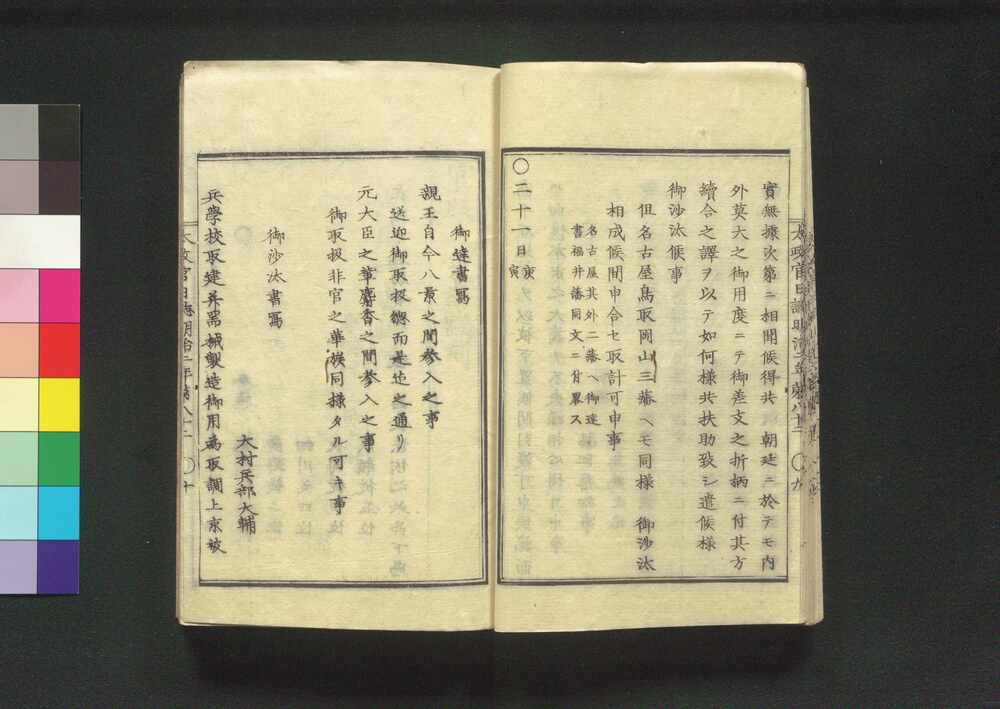 實無據次第ニ相聞候得共　朝廷ニ於テモ内
外莫大之御用度ニテ御差支之折柄ニ付其方
續合之譯ヲ以テ如何様共扶助致シ遣候様
御沙汰候事
但名古屋鳥取岡山三藩ヘモ同様　御沙汰
相成候間申合セ取計可申事
名古屋其外二藩ヘ御達
書福井藩同文ニ付畧ス
〇二十一日庚寅
御達書寫
親王自今八景之間參入之事
送迎御取扱總而是迄之通リ
元大臣之華族麝香之間參入之事
御取扱非官之華族同様タル可キ事
御沙汰書寫
大村兵部大輔
兵學校取建并噐械製造御用為取調上京被
太政官日誌明治二年第八十二　〇十